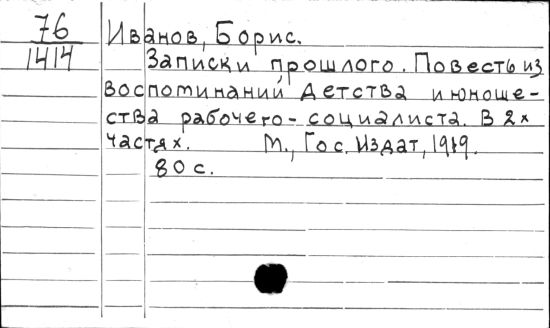 76
1414
Иванов, Борис.
Записки прошлого. Повесть из
воспоминаний детства и юноше-
ства рабочего-социалиста. В 2х
частях. М., Гос. Издат, 1919.
80 с.